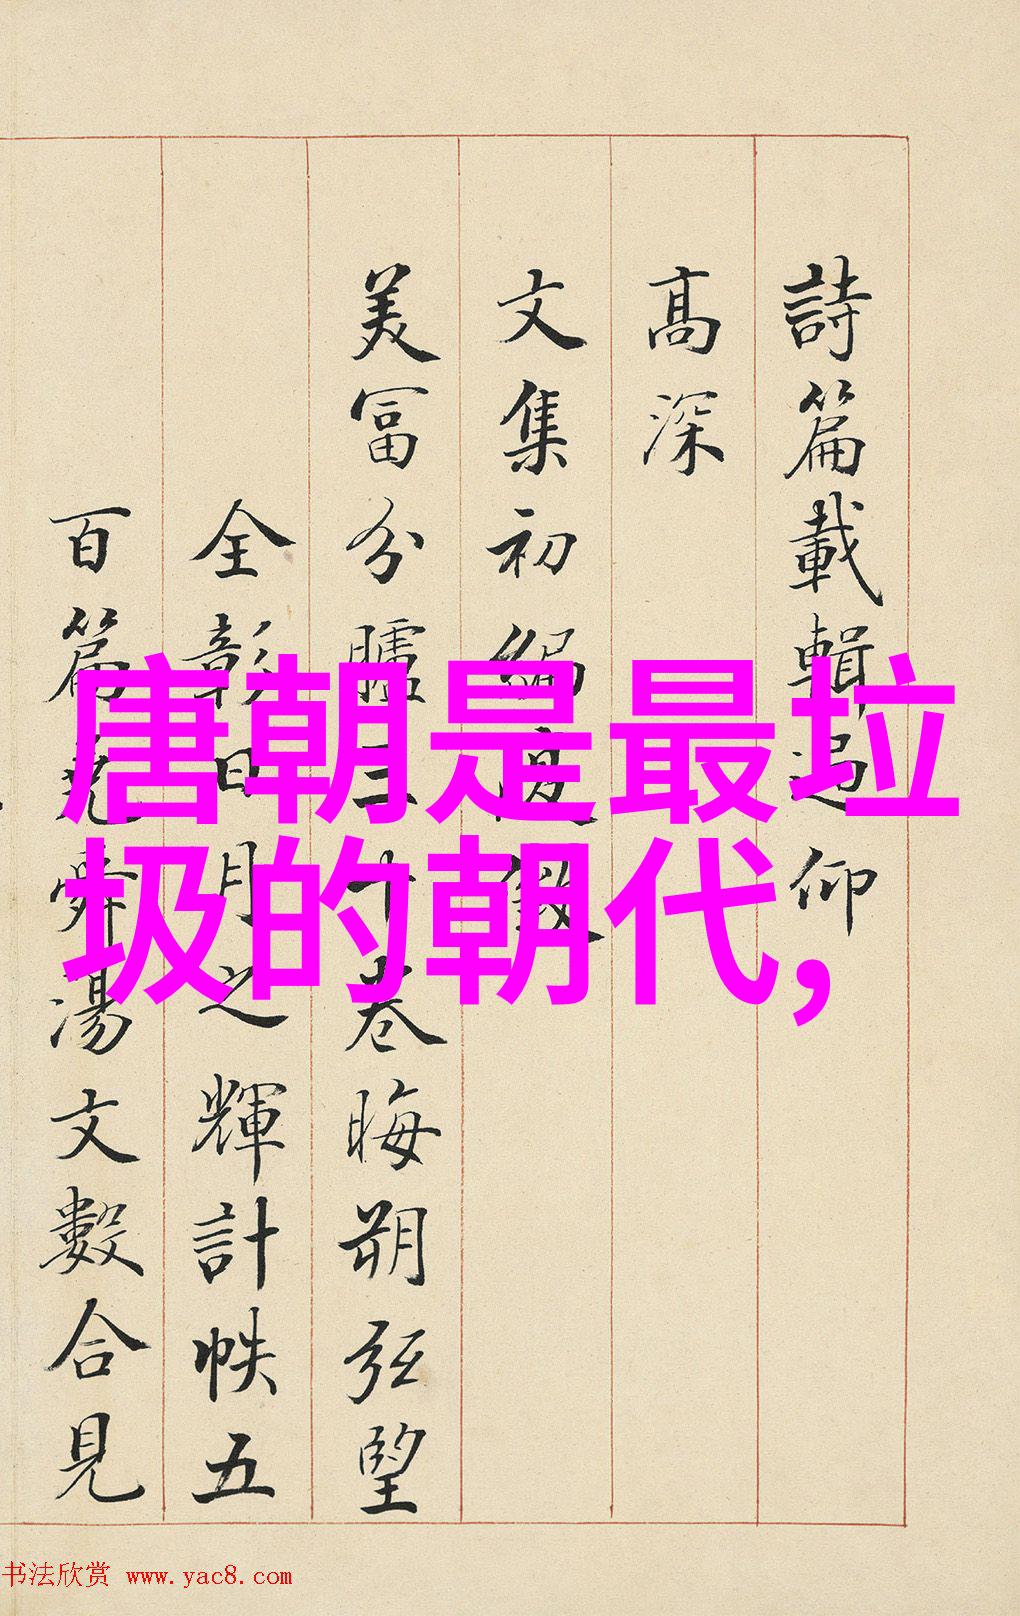 唐朝是最垃
圾的朝代，
詩篇載輯追仰
高深
文集初編
美富分臚三十卷晦朔弦望
全彰日月之輝計帙五
百篇堯舜湯文數合見
书法欣赏 www.yac8.com